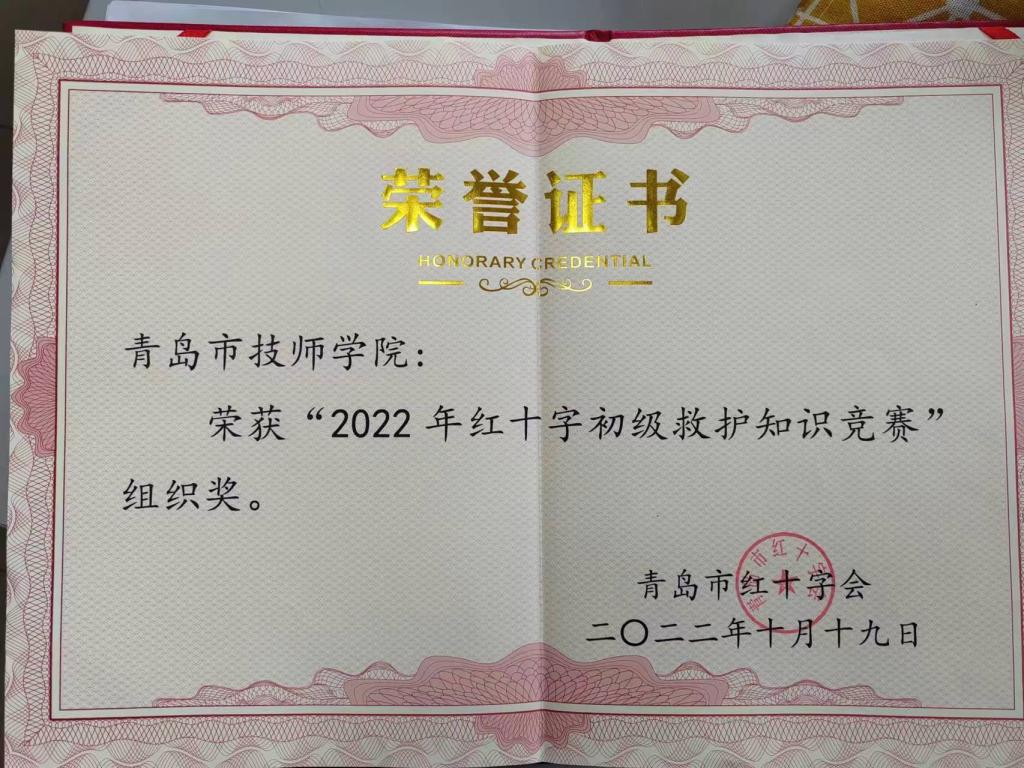 荣誉证书
HONORARY CREDENTIAL
青岛市技师学院：
荣获“2022年红十字初级救护知识竞赛”
组织奖。
青岛市红十字会
二〇二二年十月十九日
青岛市红十字会